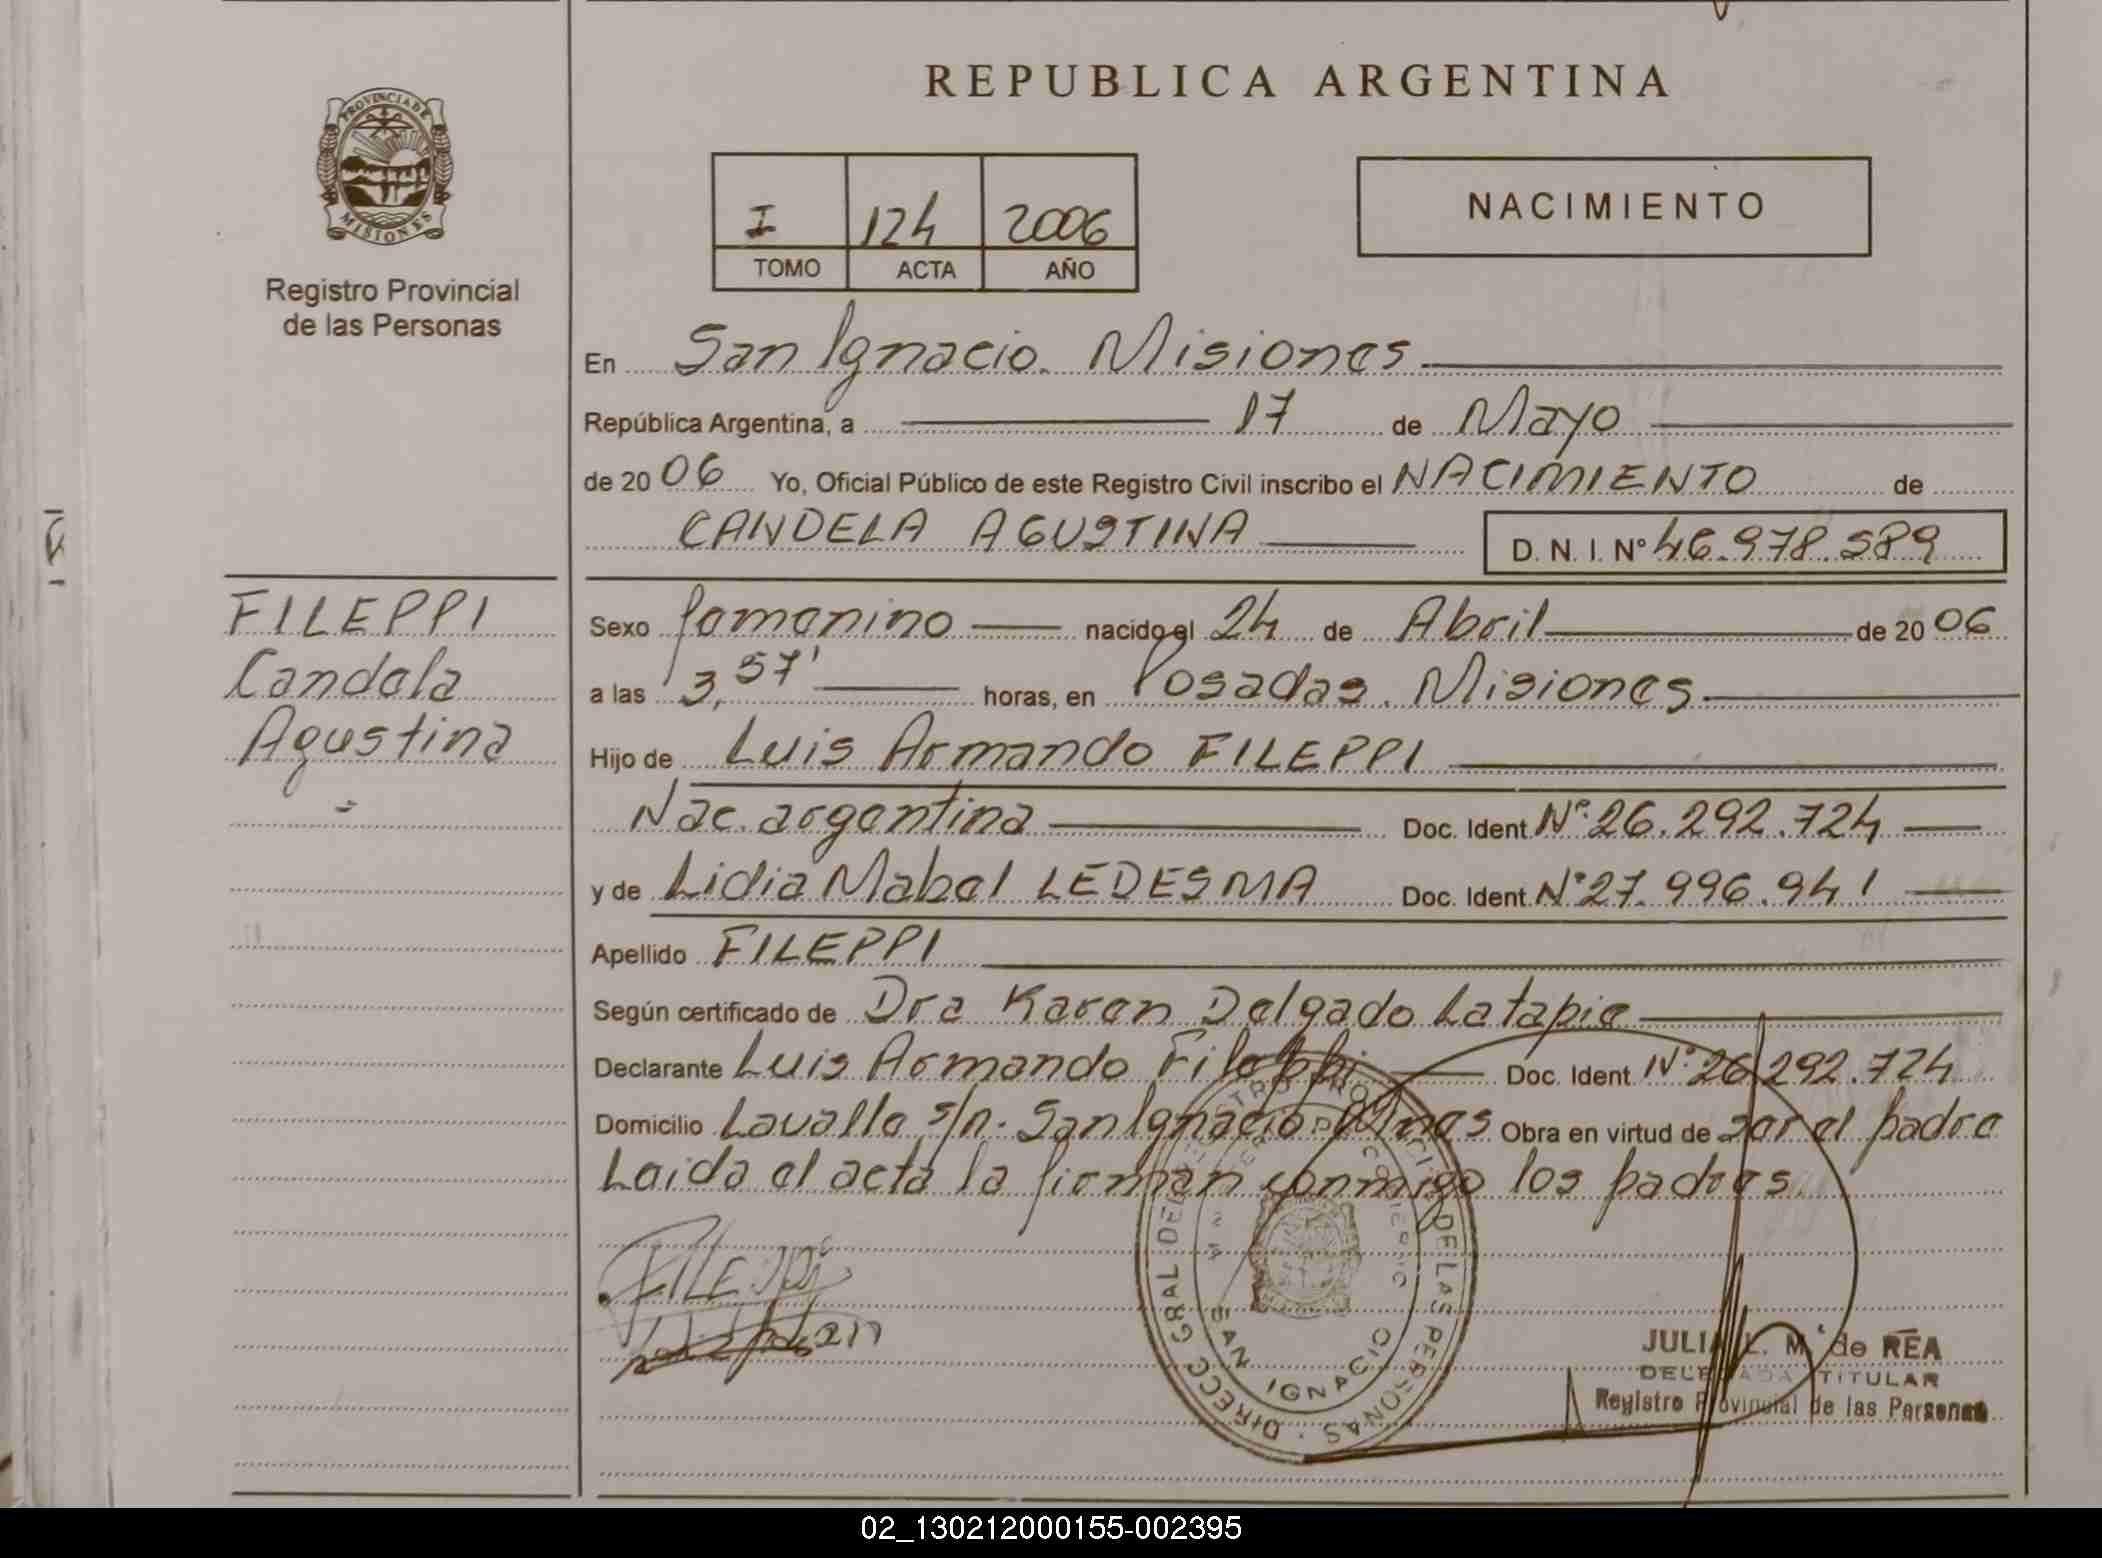 REPUBLICA ARGENTINA
PROVINCIA DE
MISIONES
Registro Provincial
de las Personas
I 124 2006
TOMO ACTA AÑO
NACIMIENTO
En San Ignacio. Misiones
República Argentina, a 17 de Mayo
de 20 06 Yo, Oficial Público de este Registro Civil inscribo el NACIMIENTO de
CANDELA AGUSTINA D. N. I. Nº 46.978.589
FILEPPI
Candela
Agustina
Sexo femenino nacido el 24 de Abril de 20 06
a las 3,57' horas, en Posadas. Misiones
Hijo de Luis Armando FILEPPI
Nac. argentina Doc. Ident. Nº 26.292.724
y de Lidia Mabel LEDESMA Doc. Ident. Nº 27.996.941
Apellido FILEPPI
Según certificado de Dra Karen Delgado Latapie
Declarante Luis Armando Fileppi Doc. Ident. Nº 26.292.724
Domicilio Lavalle s/n. San Ignacio Mnes Obra en virtud de ser el padre
Leida el acta la firman conmigo los padres.
FILEPPI
DIRECC GRAL DEL REGISTRO PROVINCIAL DE LAS PERSONAS
SAN IGNACIO
JULIA L. M. de REA
DELEGADA TITULAR
Registro Provincial de las Personas
02_130212000155-002395